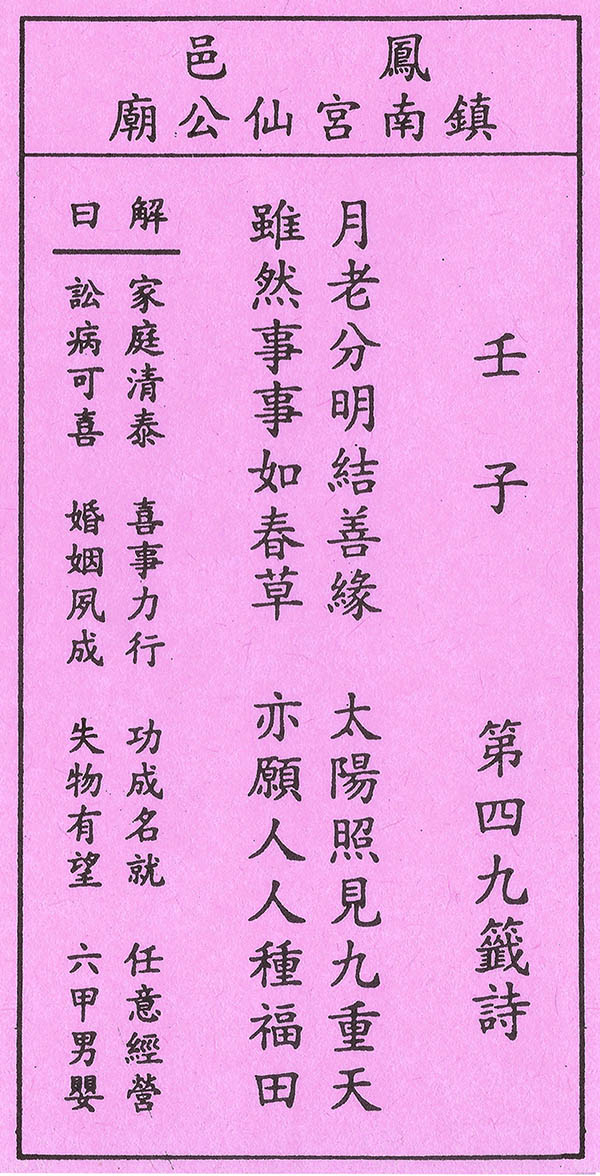 鳳邑
鎮南宮仙公廟
壬子 第四九籤詩
月老分明結善緣 太陽照見九重天
雖然事事如春草 亦願人人種福田
解曰
家庭清泰 喜事力行 功成名就 任意經營
訟病可喜 婚姻夙成 失物有望 六甲男嬰